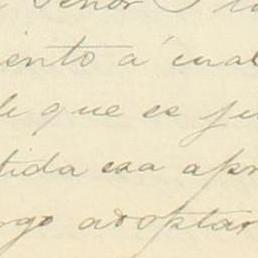 Señor
iento á cual
que es ju
tida esa apr
rgo adoptar